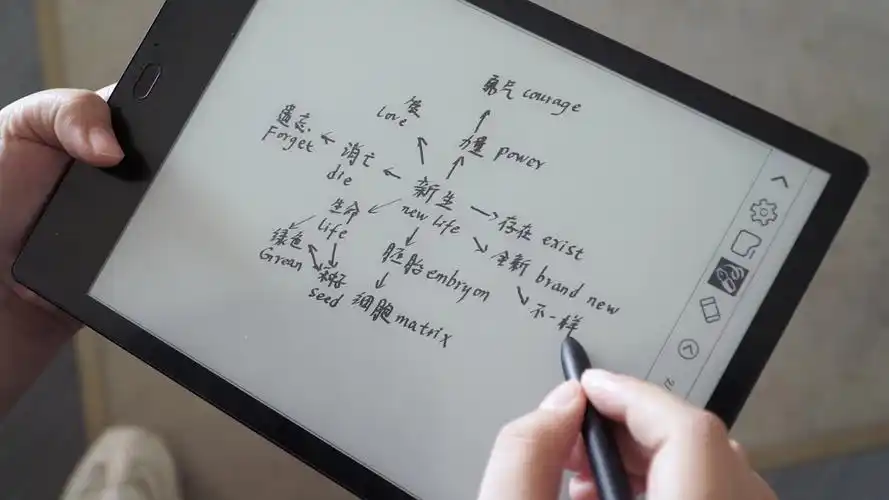 勇气 courage
爱
love
力量 power
遗忘
Forget
消亡
die
新生
new life
存在 exist
生命
life
全新 brand new
绿色
Grean
胚胎 embryon
种籽
seed
细胞 matrix
不一样